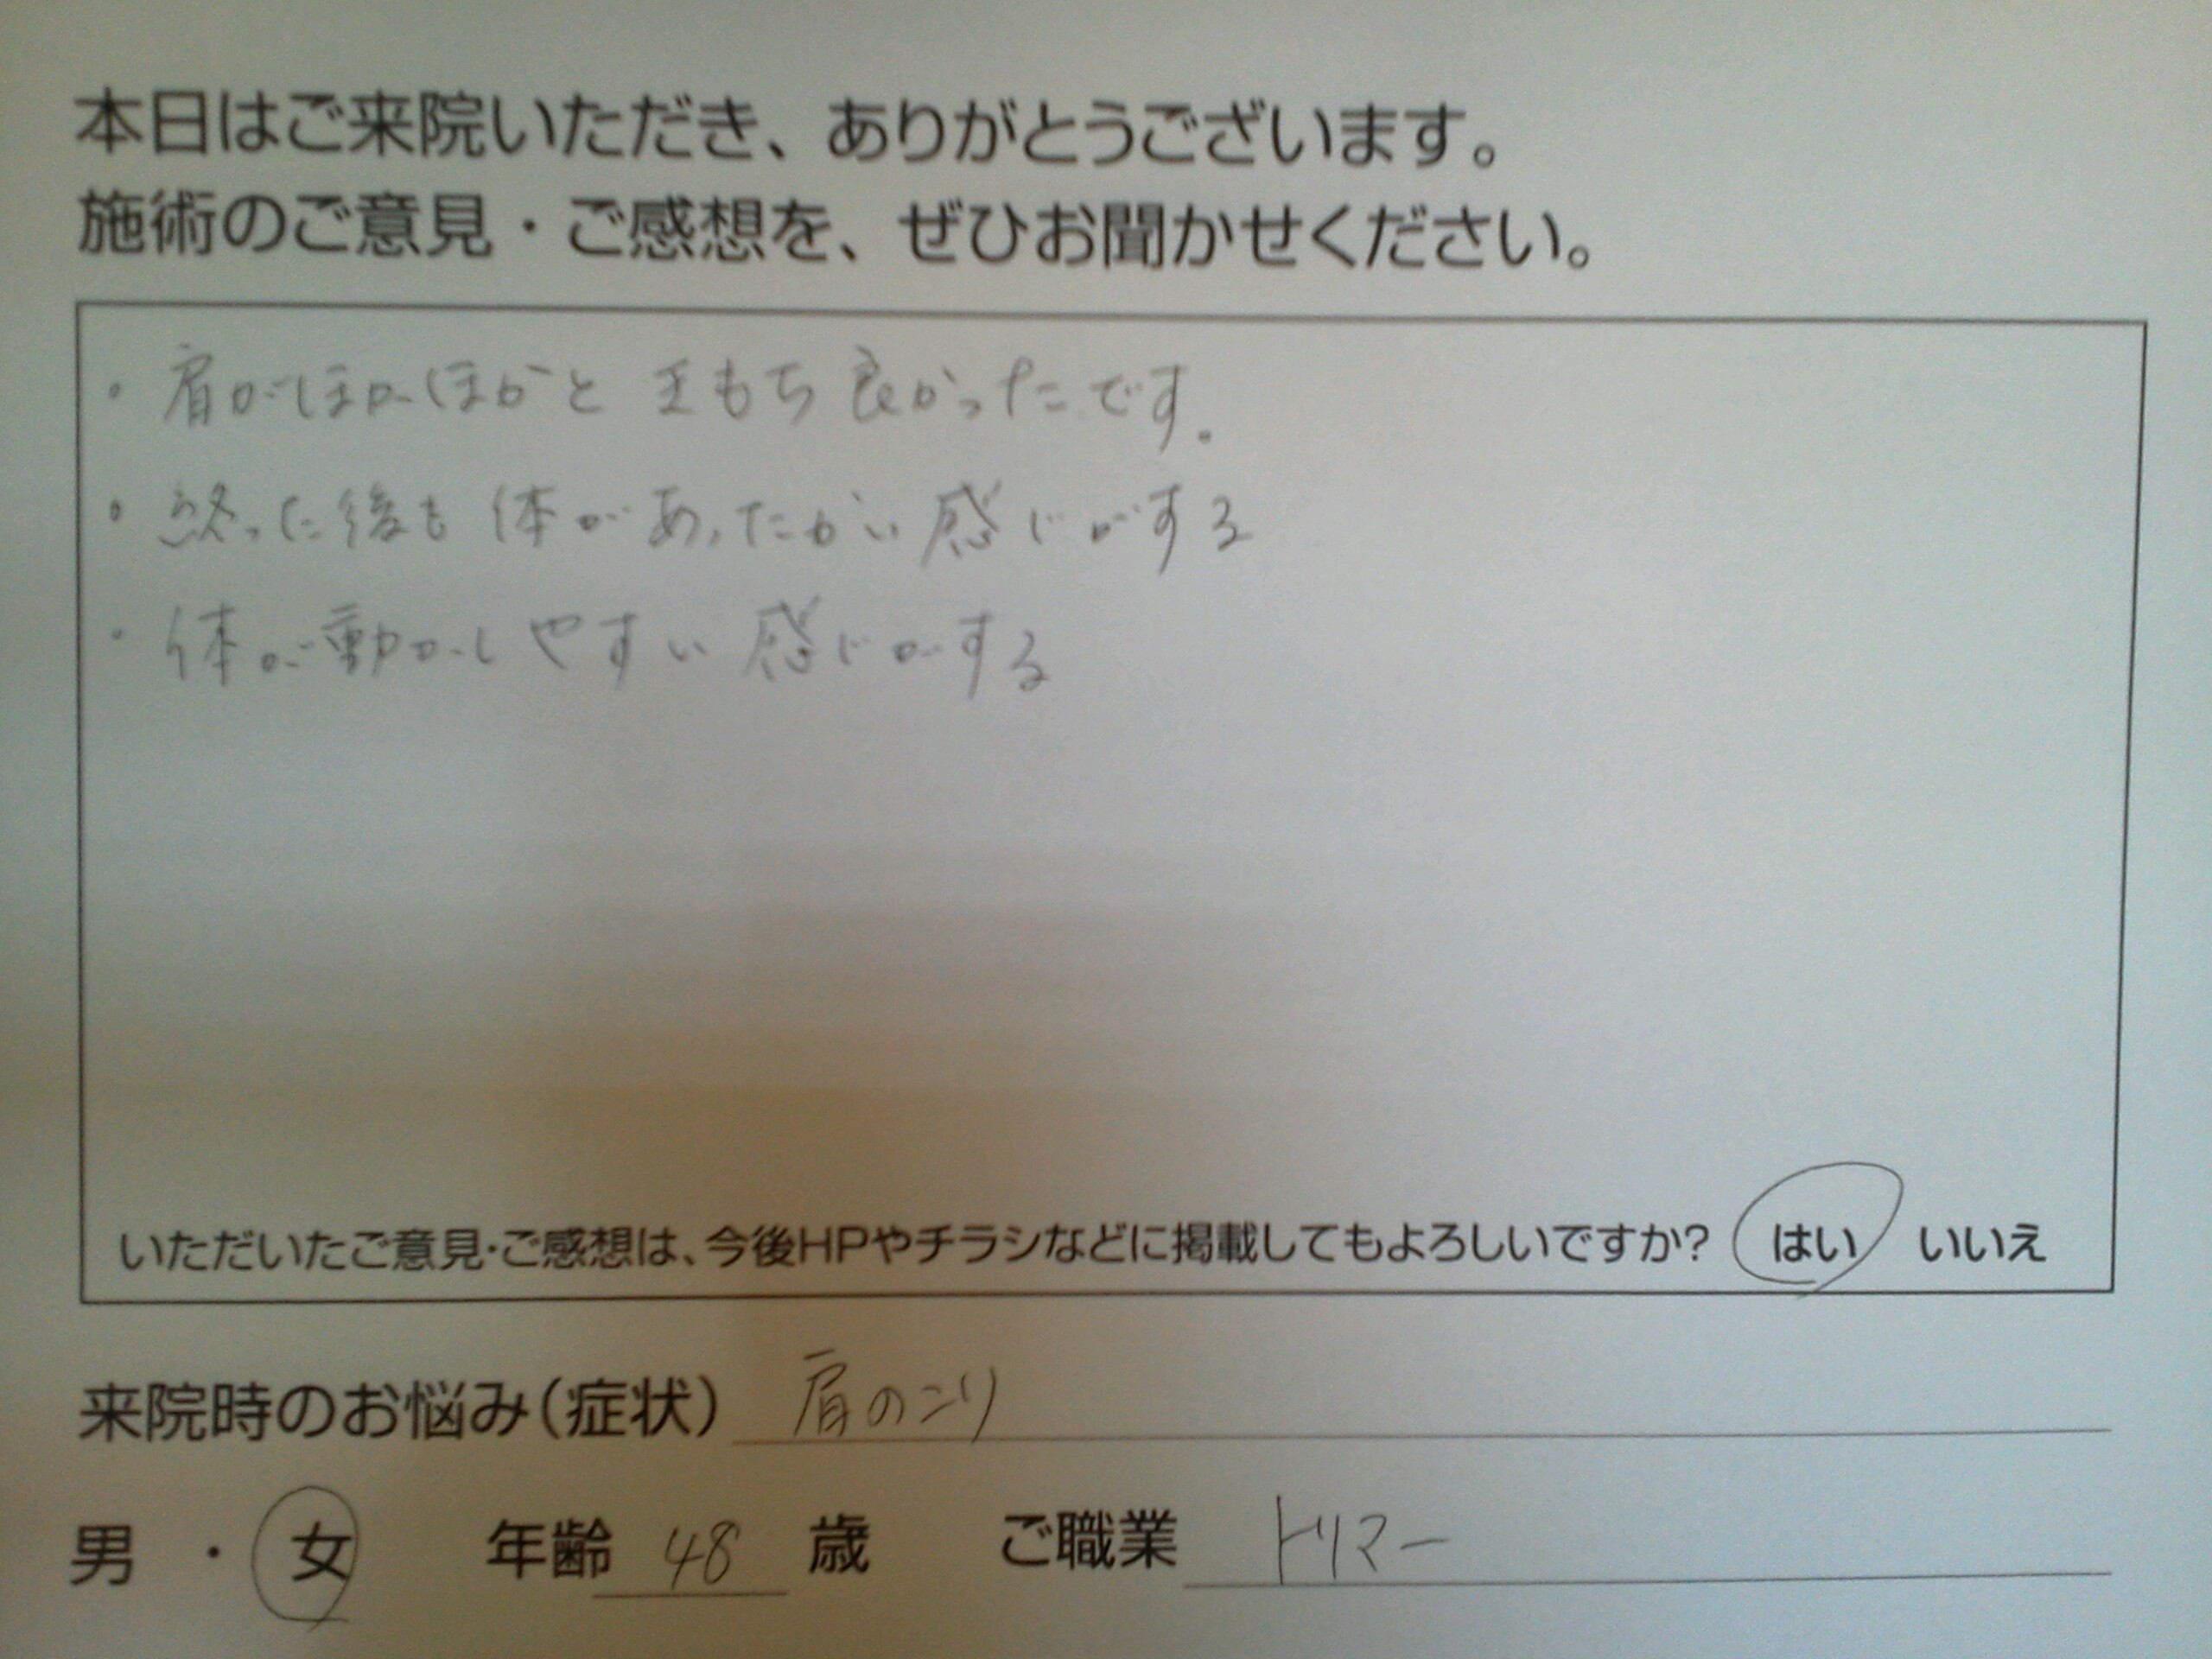 本日はご来院いただき、ありがとうございます。
施術のご意見・ご感想を、ぜひお聞かせください。
・肩がぽかぽかと 気もち良かったです.
・終った後も 体があったかい感じがする
・体が動かしやすい感じがする
いただいたご意見・ご感想は、今後HPやチラシなどに掲載してもよろしいですか? はい いいえ
来院時のお悩み(症状) 肩のこり
男 ・ 女 年齢 48 歳 ご職業 トリマー